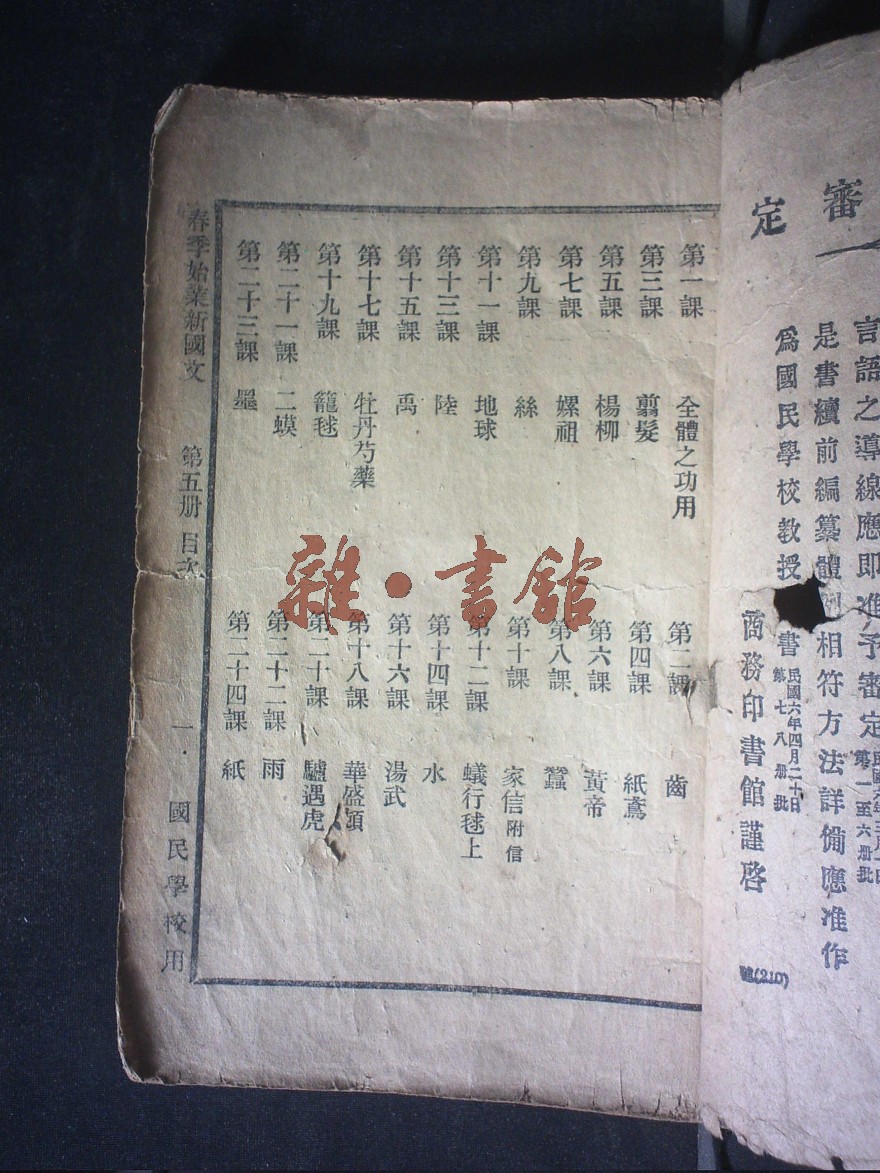 審
定
言語之導線應即進予審定
第一至六册批
是書續前編纂體例相符方法詳備應准作
爲國民學校教授
書
民國六年四月二十日
第七八册批
商務印書館謹啓
(210)
第一課 全體之功用
第二課 齒
第三課 翦髮
第四課 紙鳶
第五課 楊柳
第六課 黃帝
第七課 嫘祖
第八課 蠶
第九課 絲
第十課 家信附信
第十一課 地球
第十二課 蟻行毬上
第十三課 陸
第十四課 水
第十五課 禹
第十六課 湯武
第十七課 牡丹芍藥
第十八課 華盛頓
第十九課 籠毬
第二十課 驢遇虎
第二十一課 二蟆
第二十二課 雨
第二十三課 墨
第二十四課 紙
春季始業新國文 第五册 目次 一 國民學校用
雜·書館